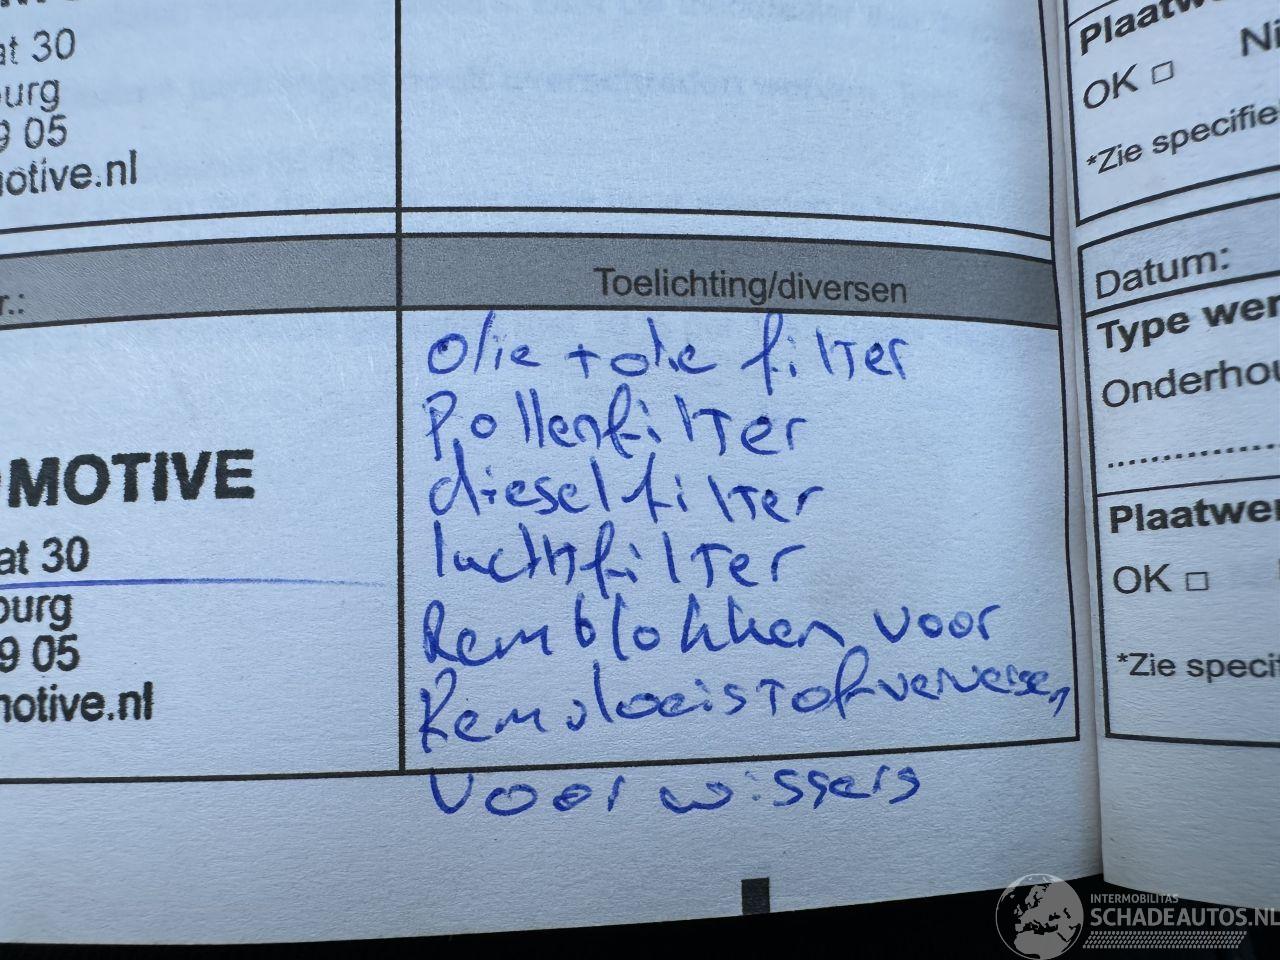 at 30
urg
9 05
otive.nl
r.:
Toelichting/diversen
Olie + olie filter
Pollenfilter
dieselfilter
luchtfilter
Remblokken voor
Remvloeistof verversen
voor wissers
MOTIVE
at 30
burg
9 05
motive.nl
Plaatw
OK □ Ni
*Zie specifie
Datum:
Type wer
Onderhou
Plaatwer
OK □
*Zie specif
INTERMOBILITAS
SCHADEAUTOS.NL